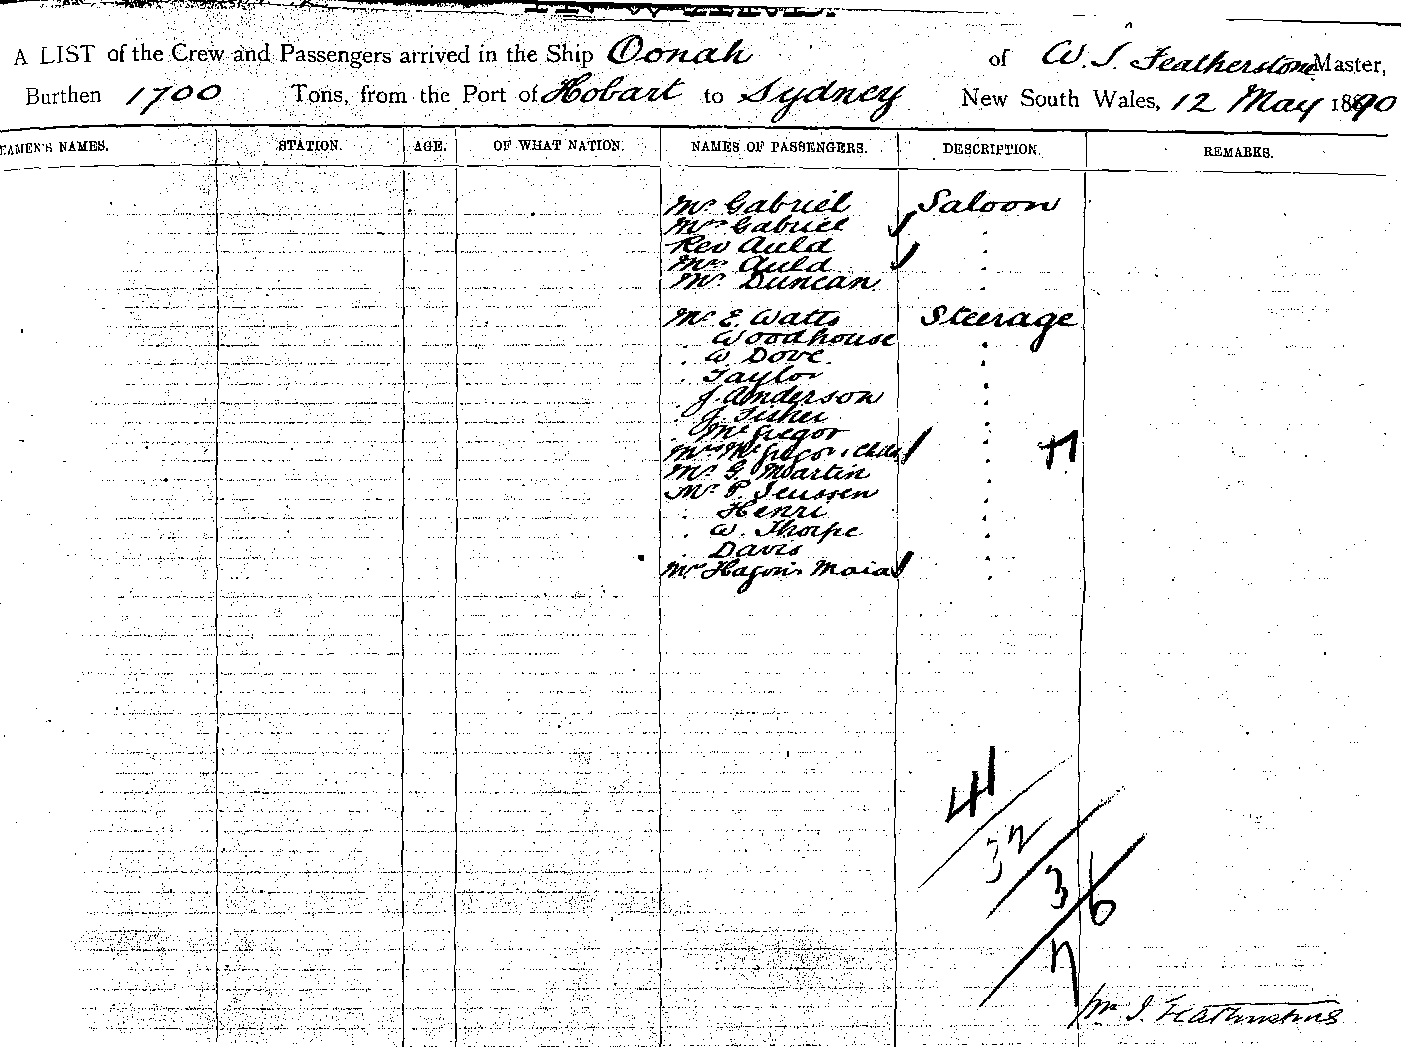 A LIST of the Crew and Passengers arrived in the Ship Oonah of W. J. Featherstone Master,
Burthen 1700 Tons, from the Port of Hobart to Sydney New South Wales, 12 May 1890
EAMEN'S NAMES. STATION. AGE. OF WHAT NATION. NAMES OF PASSENGERS. DESCRIPTION. REMARKS.
Mr Gabriel Saloon
Mrs Gabriel "
Rev Auld
Mrs Auld "
Mr Duncan "
Mr E. Watts Steerage
" Woodhouse "
" W Dove
" Taylor "
" J. Anderson "
" J. Fisher "
" McGregor "
Mrs McGregor & Child "
Mr G. Martin "
Mr P. Jenssen "
" Henri "
" W. Thorpe "
" Davis "
Mrs Hagon's Maid "
41
32
3
6
7